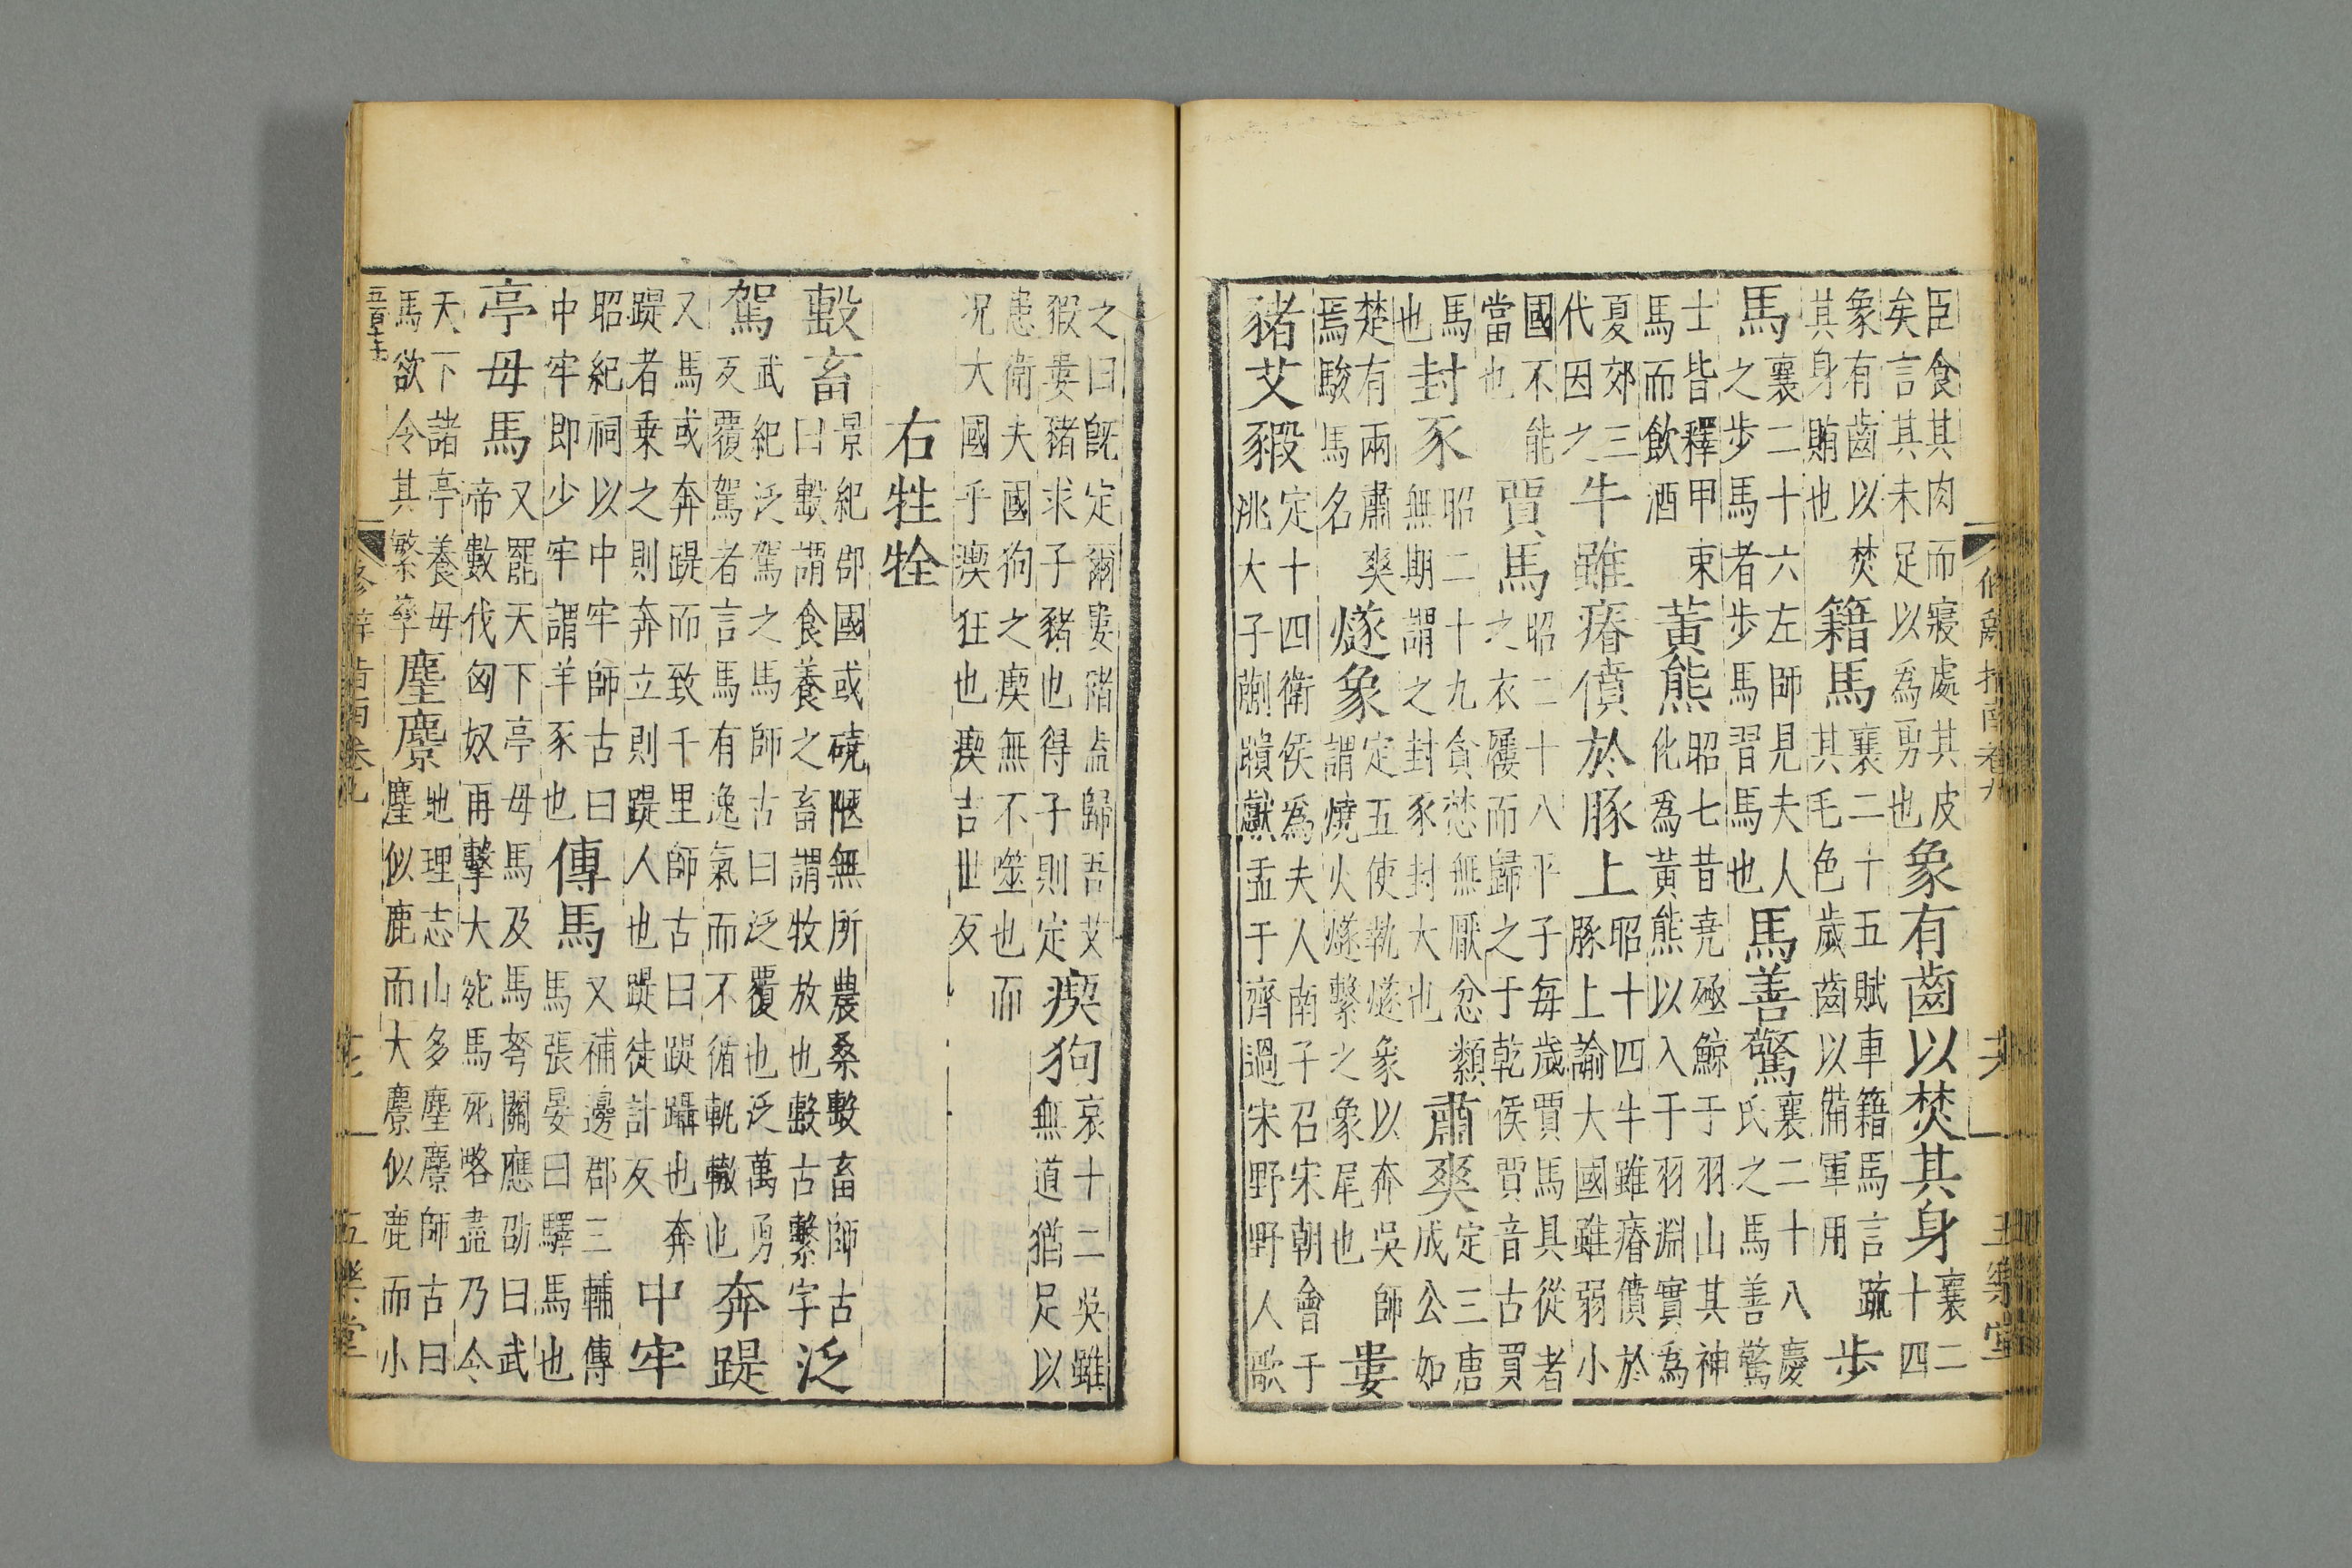 修辭指南卷九
共
五樂堂
臣食其肉而寢處其皮
矣言其未足以為勇也
象有齒以焚其身
襄二
十四
象有齒以焚
其身賄也
籍馬
襄二十五賦車籍馬言疏
其毛色歲齒以備軍用
步
馬
襄二十六左師見夫人
之步馬者步馬習馬也
馬善驚
襄二十八慶
氏之馬善驚
士皆釋甲束
馬而飲酒
黃熊
昭七昔堯殛鯀于羽山其神
化為黃熊以入于羽淵實為
夏郊三
代因之
牛雖瘠僨於豚上
昭十四牛雖瘠僨於
豚上諭大國雖弱小
國不能
當也
賈馬
昭二十八平子每歲賈馬具從者
之衣屨而歸之于乾侯賈音古買
馬
也
封豕
昭二十九貪惏無厭忿纇
無期謂之封豕封大也
肅爽
定三唐
成公如
楚有兩肅爽
焉駿馬名
燧象
定五使執燧象以奔吳師
謂燒火燧繫之象尾也
婁
豬艾豭
定十四衛侯為夫人南子召宋朝會于
洮大子蒯聵獻盂于齊過宋野野人歌
之曰旣定爾婁豬盍歸吾艾
豭婁豬求子豬也得子則定
瘈狗
哀十二吳雖
無道猶足以
患衛夫國狗之瘈無不噬也而
况大國乎瘈狂也瘈吉世反
右牲牷
毄畜
景紀郡國或磽陿無所農桑毄畜師古
曰毄謂食養之畜謂牧放也毄古繫字
泛
駕
武紀泛駕之馬師古曰泛覆也泛萬勇
反覆駕者言馬有逸氣而不循軌轍也
奔踶
又馬或奔踶而致千里師古曰踶蹋也奔
踶者乘之則奔立則踶人也踶徒計反
中牢
昭紀祠以中牢師古曰
中牢即少牢謂羊豕也
傳馬
又補邊郡三輔傳
馬張晏曰驛馬也
亭母馬
又罷天下亭母馬及馬弩關應劭曰武
帝數伐匈奴再擊大宛馬死略盡乃令
天下諸亭養母
馬欲令其繁孳
麈麖
地理志山多麈麖師古曰
麈似鹿而大麖似鹿而小
修辭指南卷九
五樂堂